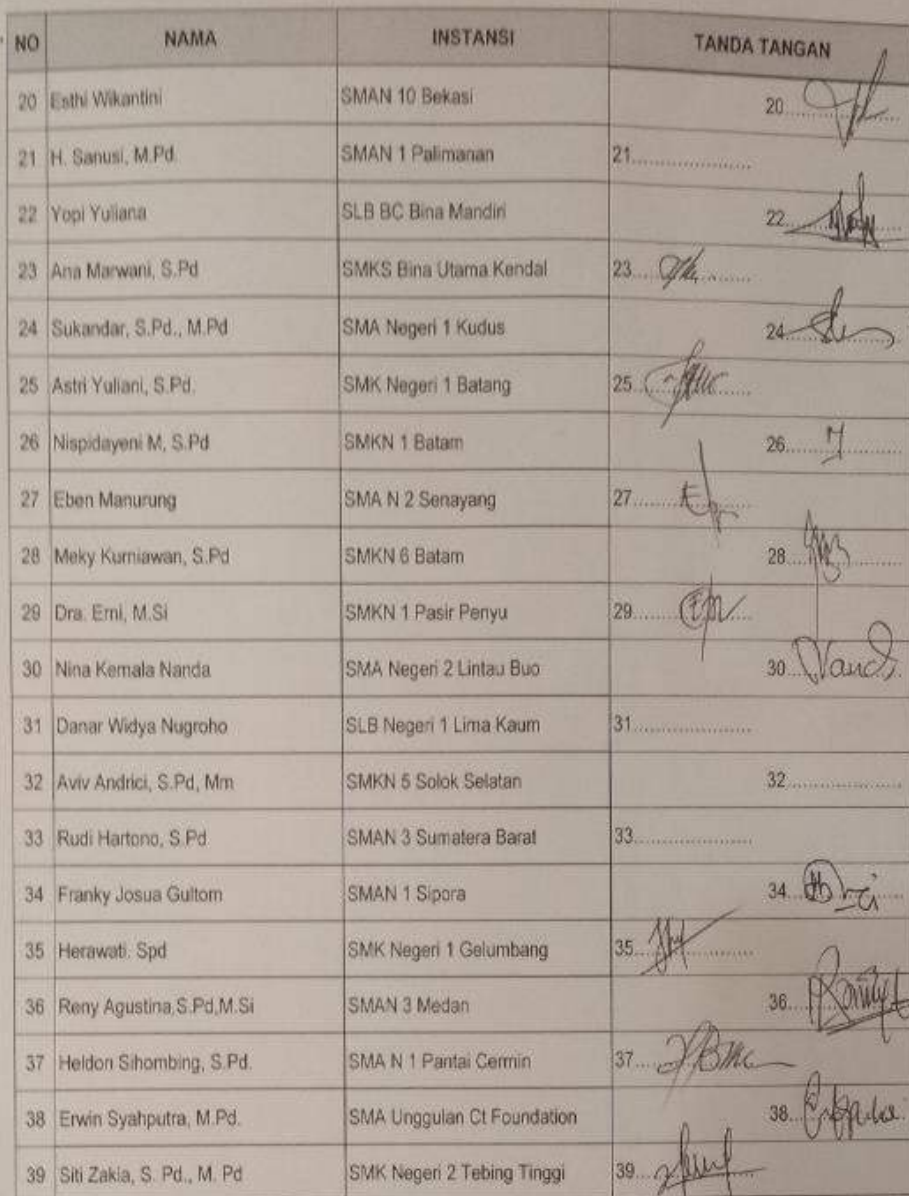 NO NAMA INSTANSI TANDA TANGAN
20 Esthi Wikantini SMAN 10 Bekasi 20
21 H. Sanusi, M.Pd. SMAN 1 Palimanan 21
22 Yopi Yuliana SLB BC Bina Mandiri 22
23 Ana Marwani, S.Pd SMKS Bina Utama Kendal 23
24 Sukandar, S.Pd., M.Pd SMA Negeri 1 Kudus 24
25 Astri Yuliani, S.Pd. SMK Negeri 1 Batang 25
26 Nispidayeni M, S.Pd SMKN 1 Batam 26
27 Eben Manurung SMA N 2 Senayang 27
28 Meky Kurniawan, S.Pd SMKN 6 Batam 28
29 Dra. Erni, M.Si SMKN 1 Pasir Penyu 29
30 Nina Kemala Nanda SMA Negeri 2 Lintau Buo 30
31 Danar Widya Nugroho SLB Negeri 1 Lima Kaum 31
32 Aviv Andrici, S.Pd, Mm SMKN 5 Solok Selatan 32
33 Rudi Hartono, S.Pd SMAN 3 Sumatera Barat 33
34 Franky Josua Gultom SMAN 1 Sipora 34
35 Herawati. Spd SMK Negeri 1 Gelumbang 35
36 Reny Agustina,S.Pd,M.Si SMAN 3 Medan 36
37 Heldon Sihombing, S.Pd. SMA N 1 Pantai Cermin 37
38 Erwin Syahputra, M.Pd. SMA Unggulan Ct Foundation 38
39 Siti Zakia, S. Pd., M. Pd SMK Negeri 2 Tebing Tinggi 39